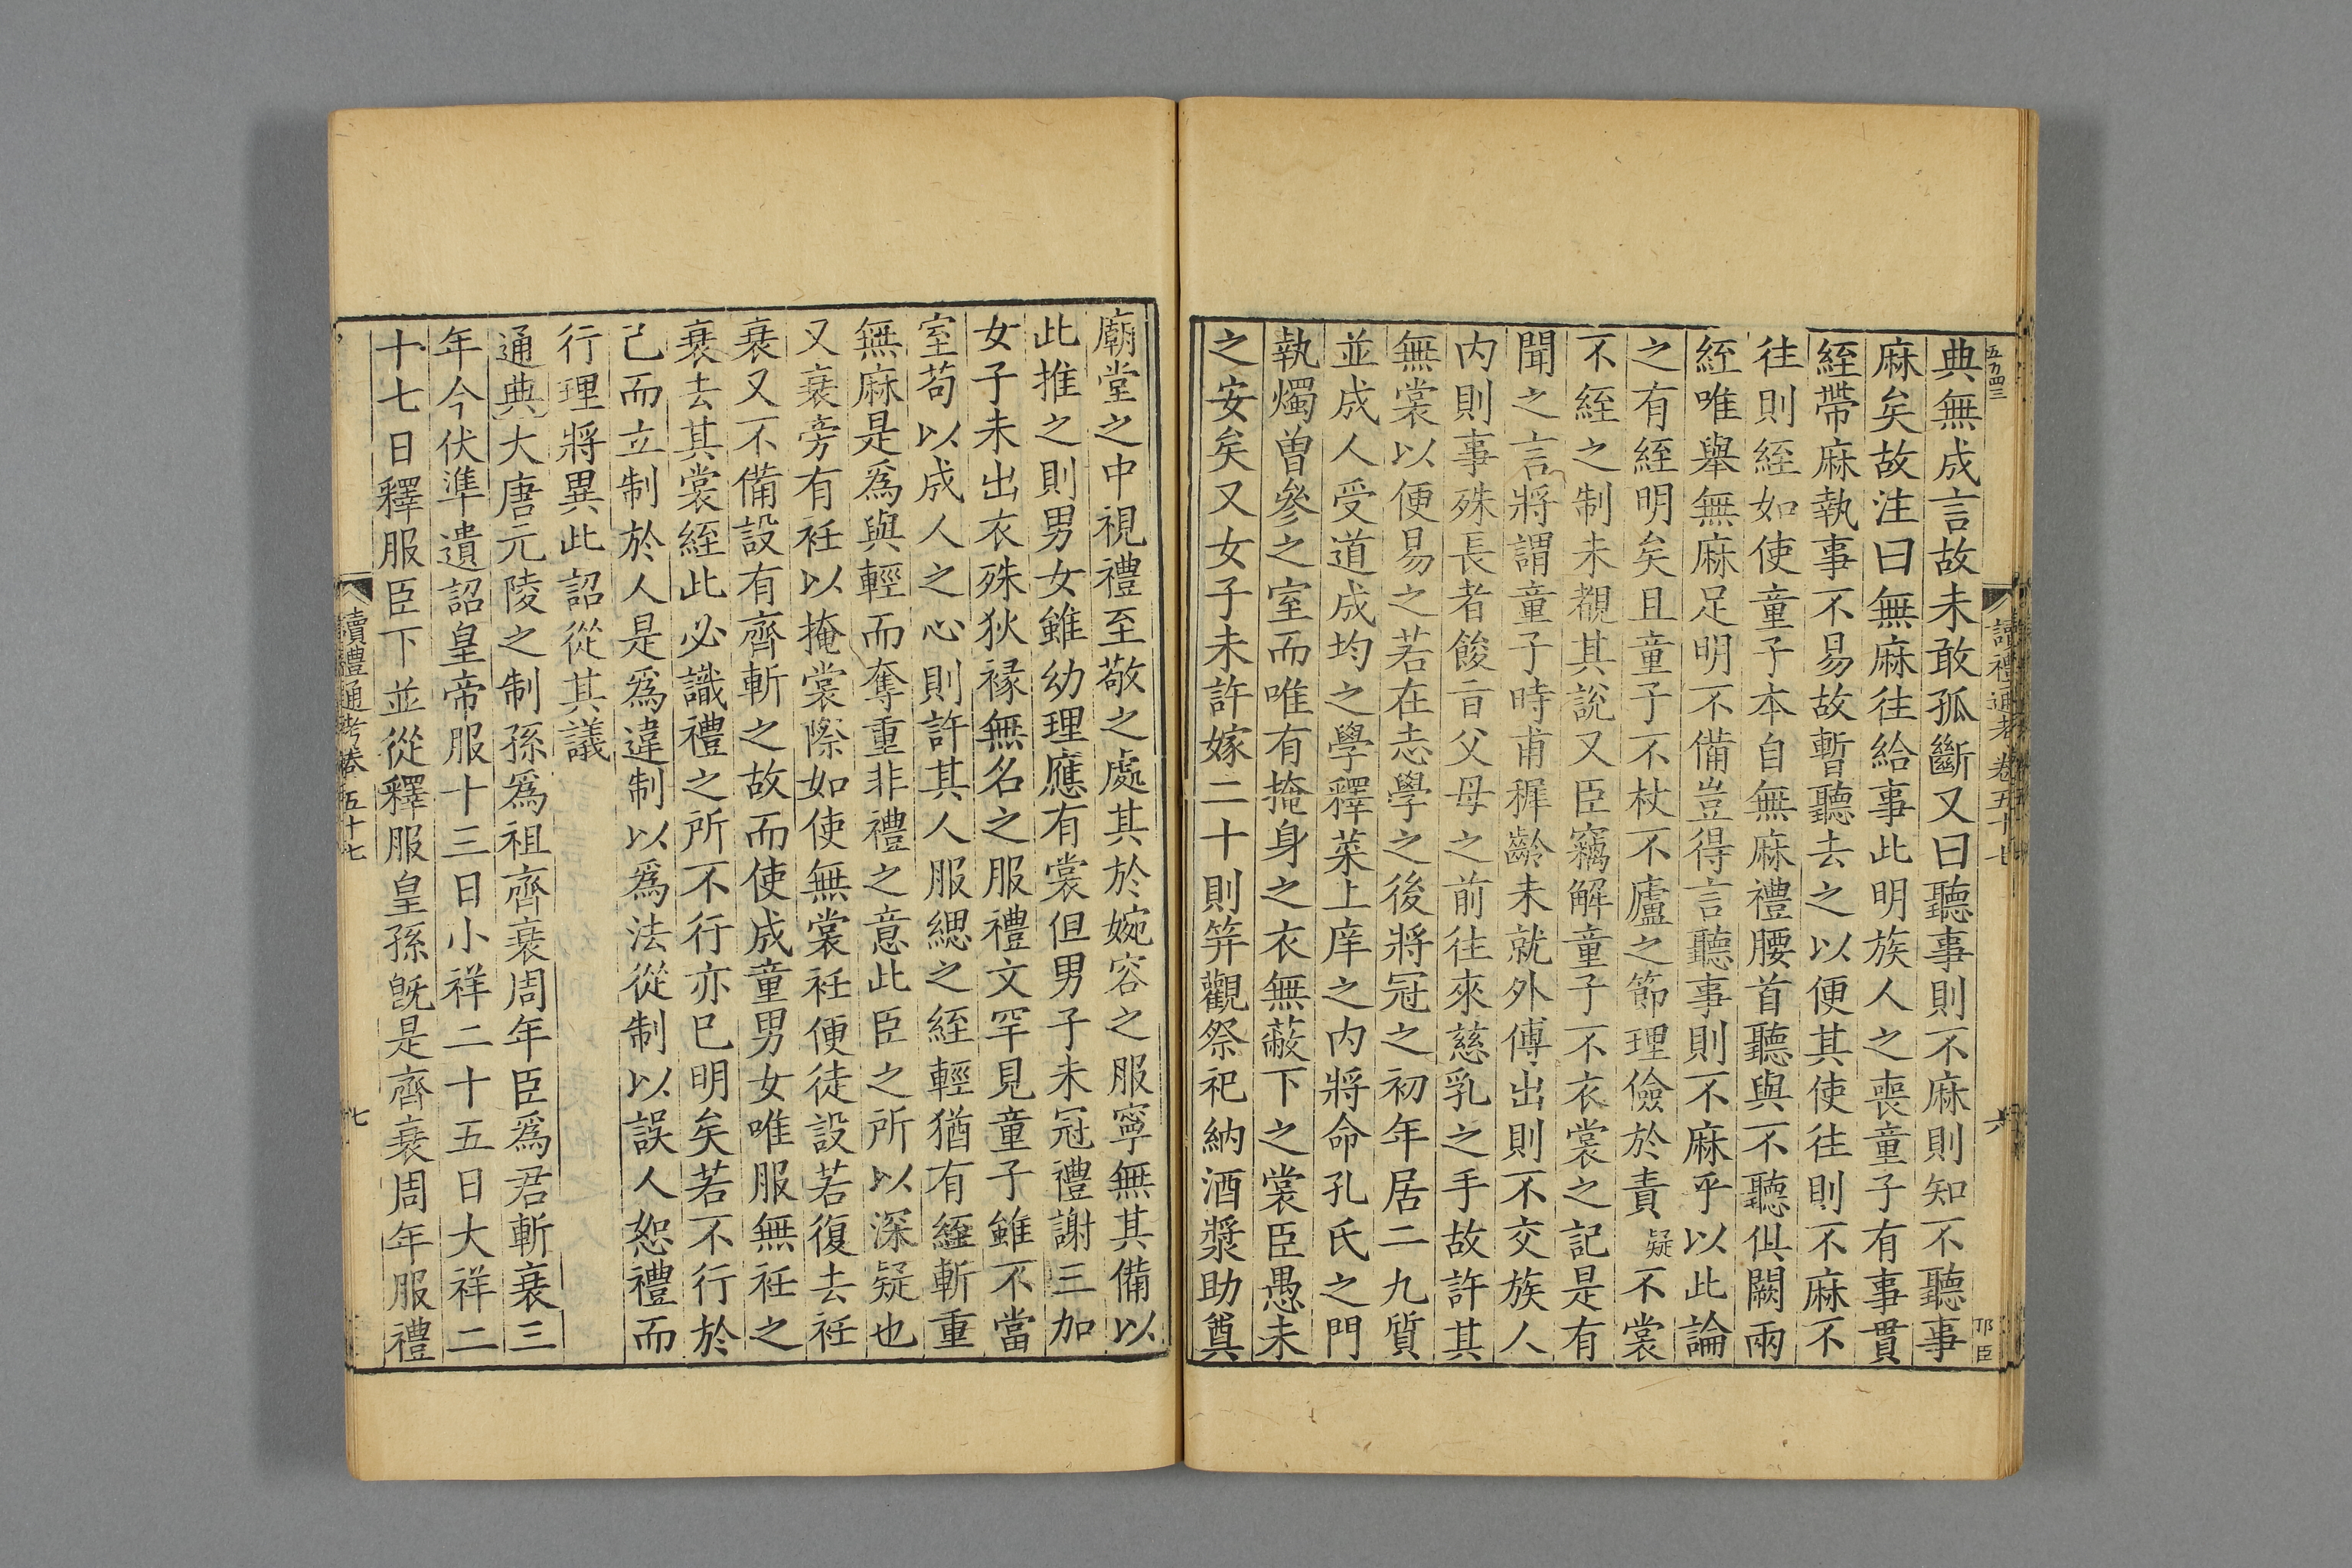 五百四三
讀禮通考 卷五十七
六
邛臣
典無成言故未敢孤斷又曰聽事則不麻則知不聽事
麻矣故注曰無麻往給事此明族人之喪童子有事貫
絰帶麻執事不易故暫聽去之以便其使往則不麻不
往則絰如使童子本自無麻禮腰首聽與不聽俱闕兩
絰唯舉無麻足明不備豈得言聽事則不麻乎以此論
之有絰明矣且童子不杖不廬之節理儉於責疑不裳
不絰之制未覩其說又臣竊解童子不衣裳之記是有
聞之言將謂童子時甫稺齡未就外傅出則不交族人
内則事殊長者餕㫖父母之前往來慈乳之手故許其
無裳以便易之若在志學之後將冠之初年居二九質
並成人受道成均之學釋菜上庠之内將命孔氏之門
執燭曾參之室而唯有掩身之衣無蔽下之裳臣愚未
之安矣又女子未許嫁二十則笄觀祭祀納酒漿助奠
廟堂之中視禮至敬之處其於婉容之服寧無其備以
此推之則男女雖幼理應有裳但男子未冠禮謝三加
女子未出衣殊狄褖無名之服禮文罕見童子雖不當
室苟以成人之心則許其人服緦之絰輕猶有絰斬重
無麻是爲與輕而奪重非禮之意此臣之所以深疑也
又衰旁有衽以掩裳際如使無裳衽便徒設若復去衽
衰又不備設有齊斬之故而使成童男女唯服無衽之
衰去其裳絰此必識禮之所不行亦已明矣若不行於
己而立制於人是爲違制以爲法從制以誤人恕禮而
行理將異此詔從其議
通典大唐元陵之制孫爲祖齊衰周年臣爲君斬衰三
年今伏準遺詔皇帝服十三日小祥二十五日大祥二
十七日釋服臣下並從釋服皇孫旣是齊衰周年服禮
讀禮通考卷五十七
七